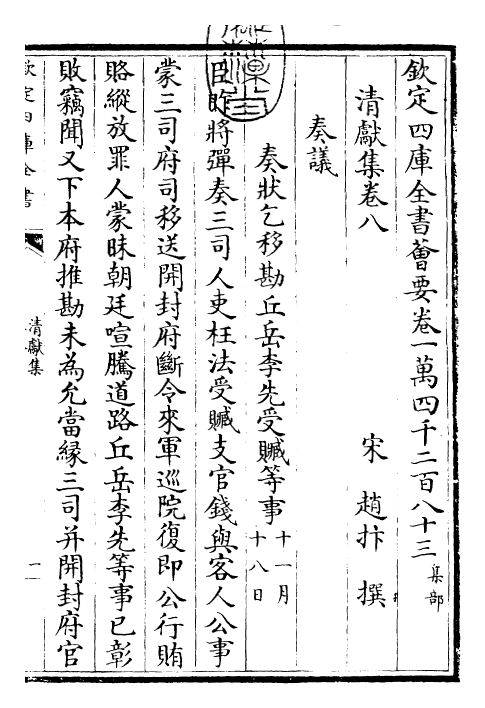 欽定四庫全書薈要卷一萬四千二百八十三 集部
清獻集卷八
宋 趙抃 撰
奏議
奏狀乞移勘丘岳李先受贓等事 十一月十八日
臣昨將彈奏三司人吏枉法受贓支官錢與客人公事
蒙三司府司移送開封府斷令來軍巡院復即公行賄
賂縱放罪人蒙昧朝廷喧騰道路丘岳李先等事已彰
敗竊聞又下本府推勘未為允當緣三司并開封府官
欽定四庫全書
清獻集
一